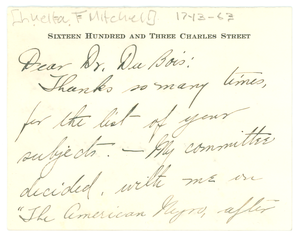 [Lucita F Mitchell]
SIXTEEN HUNDRED AND THREE CHARLES STREET
Dear Dr. Du Bois:
Thanks so many times,
for the list of your
subjects. – My committee
decided, with me on
"The American Negro, after